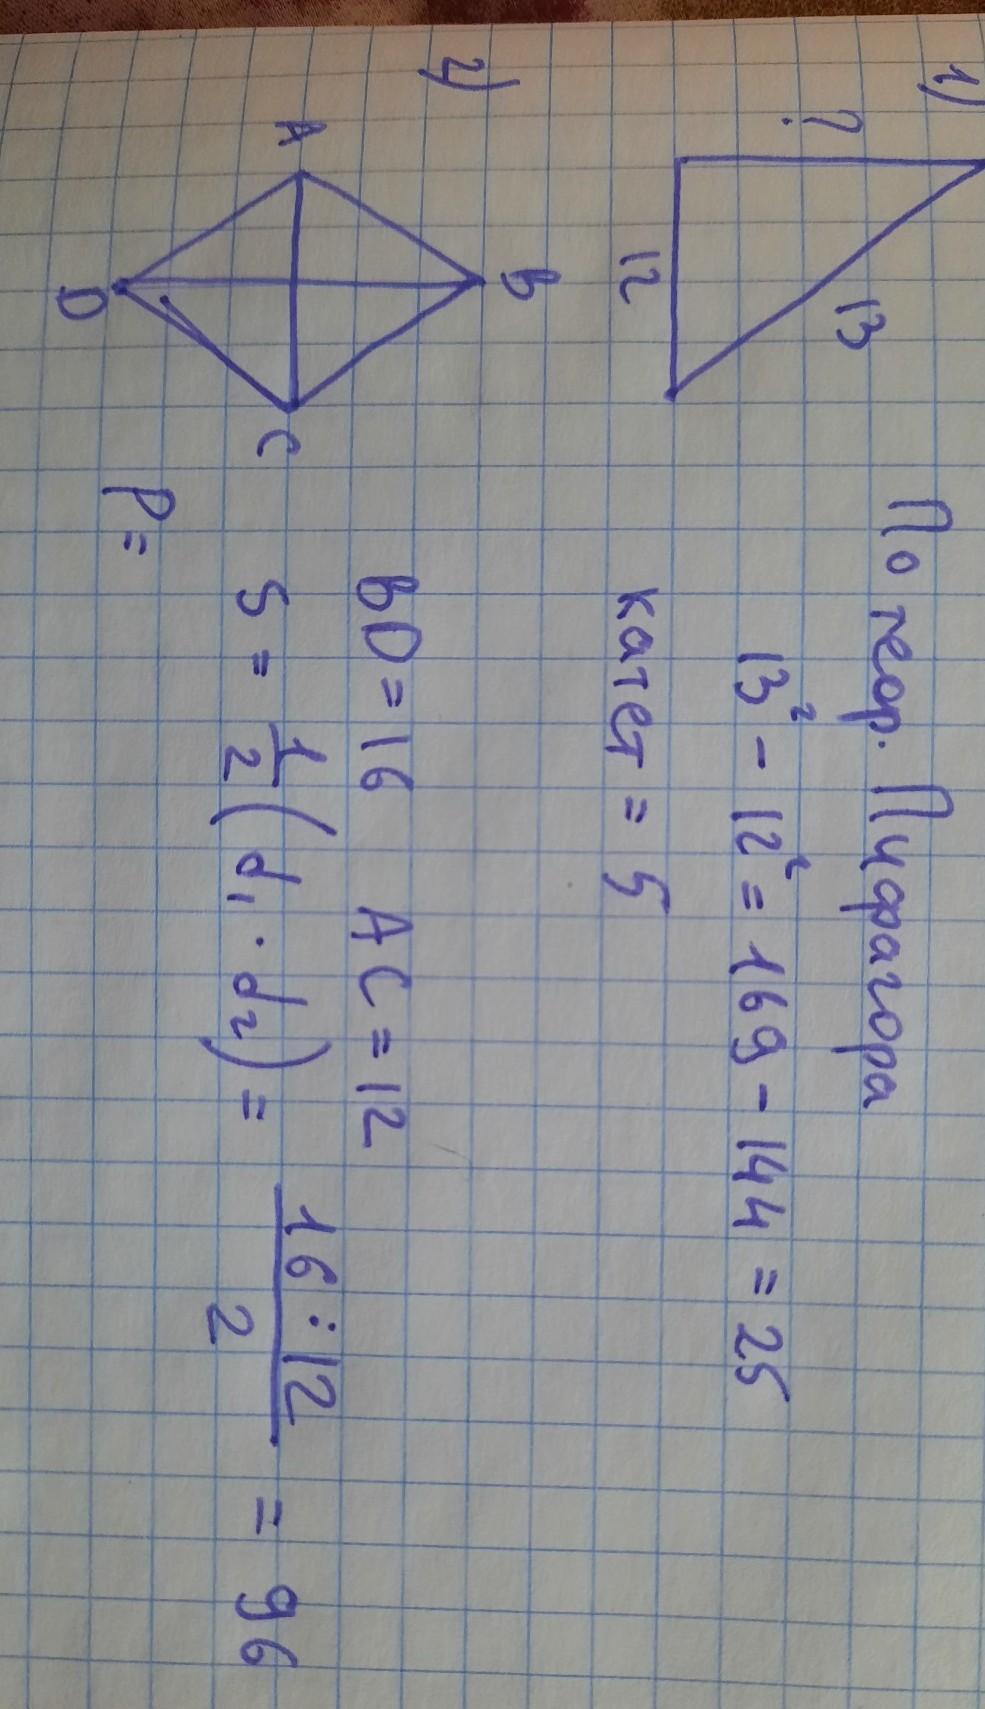 1)
?
13
12
По теор. Пифагора
13² - 12² = 169 - 144 = 25
катет = 5
2)
A
B
C
D
BD = 16 AC = 12
S = 1/2 (d₁ · d₂) = 16 : 12 / 2 = 96
P =